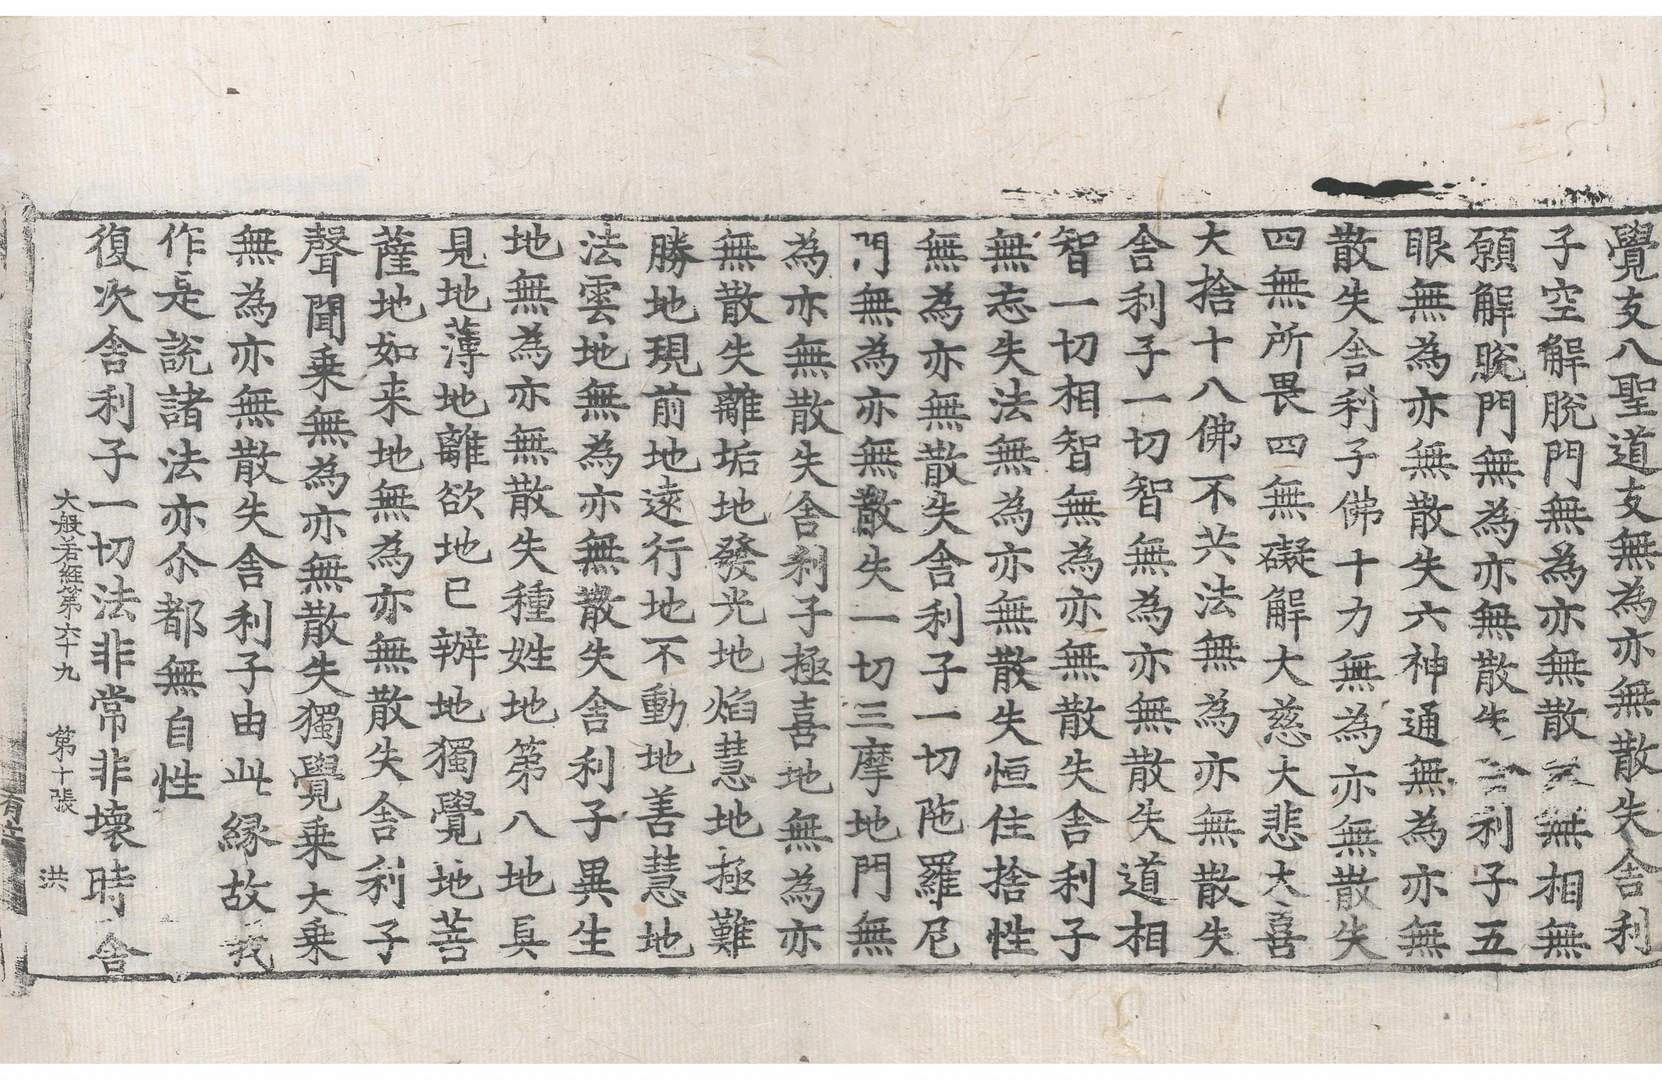 覺支八聖道支無為亦無散失舍利
子空解脫門無為亦無散 無相無
願解脫門無為亦無散失 利子五
眼無為亦無散失六神通無為亦無
散失舍利子佛十力無為亦無散失
四無所畏四無礙解大慈大悲大喜
大捨十八佛不共法無為亦無散失
舍利子一切智無為亦無散失道相
智一切相智無為亦無散失舍利子
無忘失法無為亦無散失恒住捨性
無為亦無散失舍利子一切陁羅尼
門無為亦無散失一切三摩地門無
為亦無散失舍利子極喜地無為亦
無散失離垢地發光地焰慧地極難
勝地現前地遠行地不動地善慧地
法雲地無為亦無散失舍利子異生
地無為亦無散失種姓地第八地具
見地薄地離欲地已辦地獨覺地菩
薩地如来地無為亦無散失舍利子
聲聞乗無為亦無散失獨覺乗大乗
無為亦無散失舍利子由此緣故我
作是說諸法亦尒都無自性
復次舍利子一切法非常非壞時舍
大般若經第六十九 第十張 洪